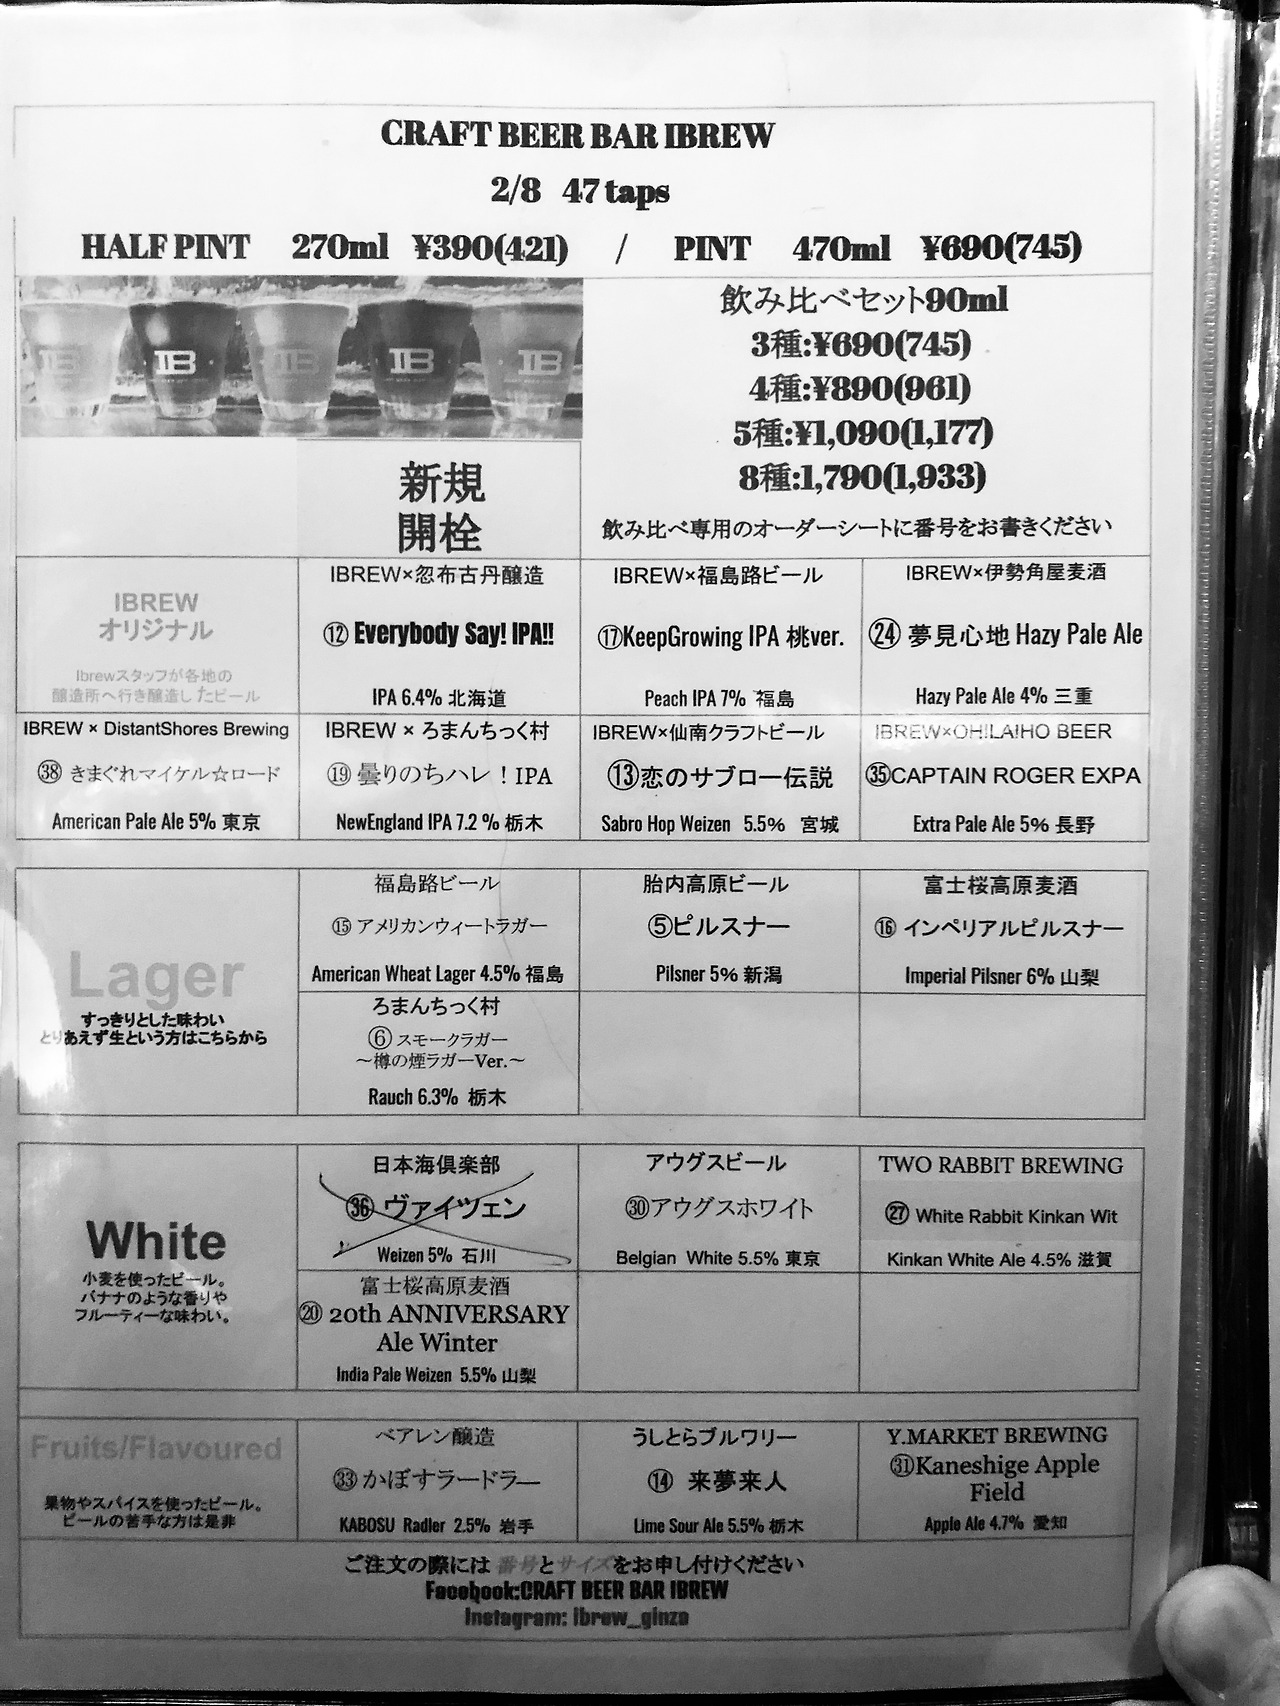 CRAFT BEER BAR IBREW
2/8 47 taps
HALF PINT 270ml ¥390(421) / PINT 470ml ¥690(745)
飲み比べセット90ml
3種:¥690(745)
4種:¥890(961)
5種:¥1,090(1,177)
8種:1,790(1,933)
飲み比べ専用のオーダーシートに番号をお書きください
IB IB IB IB IB
新規
開栓
IBREW
オリジナル
Ibrewスタッフが各地の
醸造所へ行き醸造したビール
IBREW×忽布古丹醸造
⑫ Everybody Say! IPA!!
IPA 6.4% 北海道
IBREW×福島路ビール
⑰KeepGrowing IPA 桃ver.
Peach IPA 7% 福島
IBREW×伊勢角屋麦酒
㉔ 夢見心地 Hazy Pale Ale
Hazy Pale Ale 4% 三重
IBREW × DistantShores Brewing
㊳ きまぐれマイケル☆ロード
American Pale Ale 5% 東京
IBREW × ろまんちっく村
⑲ 曇りのちハレ！IPA
NewEngland IPA 7.2 % 栃木
IBREW×仙南クラフトビール
⑬恋のサブロー伝説
Sabro Hop Weizen 5.5% 宮城
IBREW×OH!LA!HO BEER
㉟CAPTAIN ROGER EXPA
Extra Pale Ale 5% 長野
Lager
すっきりとした味わい
とりあえず生という方はこちらから
福島路ビール
⑮ アメリカンウィートラガー
American Wheat Lager 4.5% 福島
胎内高原ビール
⑤ピルスナー
Pilsner 5% 新潟
富士桜高原麦酒
⑯ インペリアルピルスナー
Imperial Pilsner 6% 山梨
ろまんちっく村
⑥ スモークラガー
～樽の煙ラガーVer.～
Rauch 6.3% 栃木
White
小麦を使ったビール。
バナナのような香りや
フルーティーな味わい。
日本海倶楽部
㊱ ヴァイツェン
Weizen 5% 石川
アウグスビール
㉚アウグスホワイト
Belgian White 5.5% 東京
TWO RABBIT BREWING
㉗ White Rabbit Kinkan Wit
Kinkan White Ale 4.5% 滋賀
富士桜高原麦酒
⑳ 20th ANNIVERSARY
Ale Winter
India Pale Weizen 5.5% 山梨
Fruits/Flavoured
果物やスパイスを使ったビール。
ビールの苦手な方は是非
ベアレン醸造
㉝ かぼすラードラー
KABOSU Radler 2.5% 岩手
うしとらブルワリー
⑭ 来夢来人
Lime Sour Ale 5.5% 栃木
Y.MARKET BREWING
㉛Kaneshige Apple
Field
Apple Ale 4.7% 愛知
ご注文の際には 番号とサイズをお申し付けください
Facebook:CRAFT BEER BAR IBREW
Instagram: ibrew_ginza